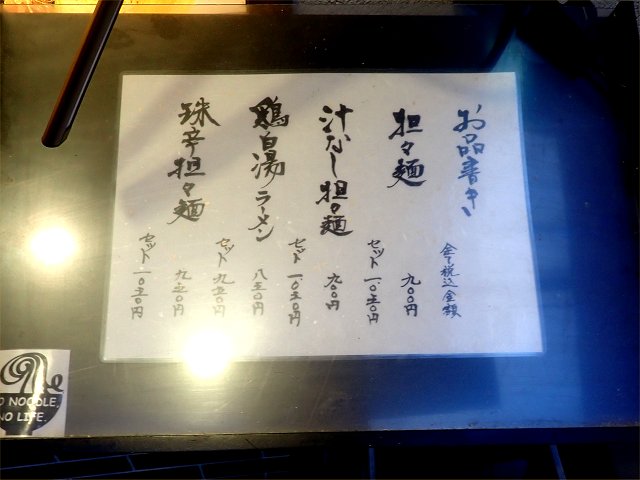 お品書き
全て税込金額
担々麺 九〇〇円
セット 一、〇五〇円
汁なし担々麺 九〇〇円
セット 一、〇五〇円
鶏白湯ラーメン 八五〇円
セット 九五〇円
珠辛担々麺 九五〇円
セット 一、〇五〇円
O NOODLE.
NO LIFE.